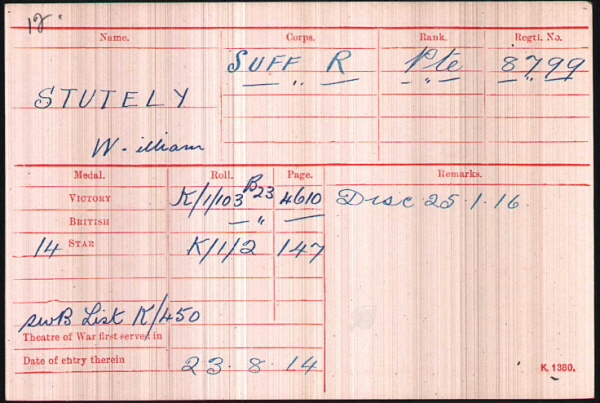 12
Name. Corps. Rank. Regtl. No.
SUFF R Pte 8799
— " — — " — — " —
STUTELY
W. illiam
Medal. Roll. Page. Remarks.
VICTORY K/1/103 B23 4610 Disc 25.1.16.
BRITISH — " — —
14 STAR K/1/2 147
SWB List K/450
Theatre of War first served in
Date of entry therein 23.8.14
K. 1380.